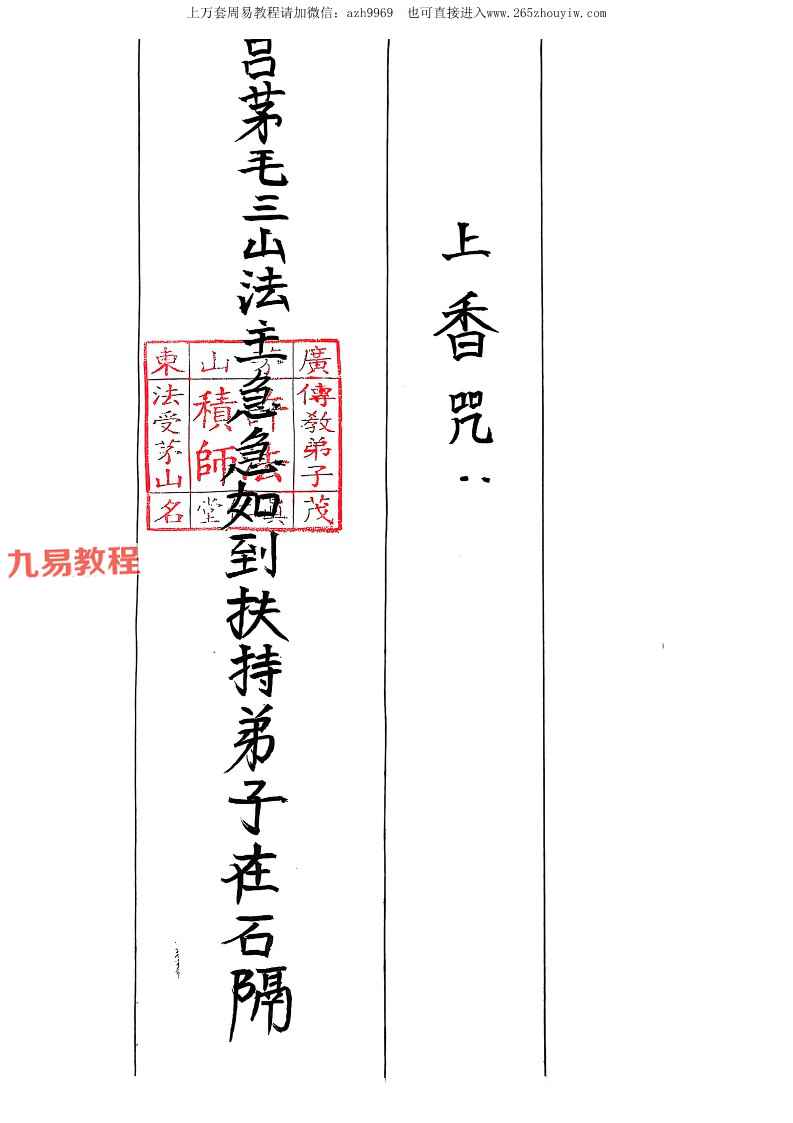 上万套周易教程请加微信：azh9969　也可直接进入www.265zhouyiw.com
上香咒：
呂茅毛三山法主急急如到扶持弟子在石隔
廣
傳教弟子
茂
山
積師
堂
東
法受茅山
名
九易教程